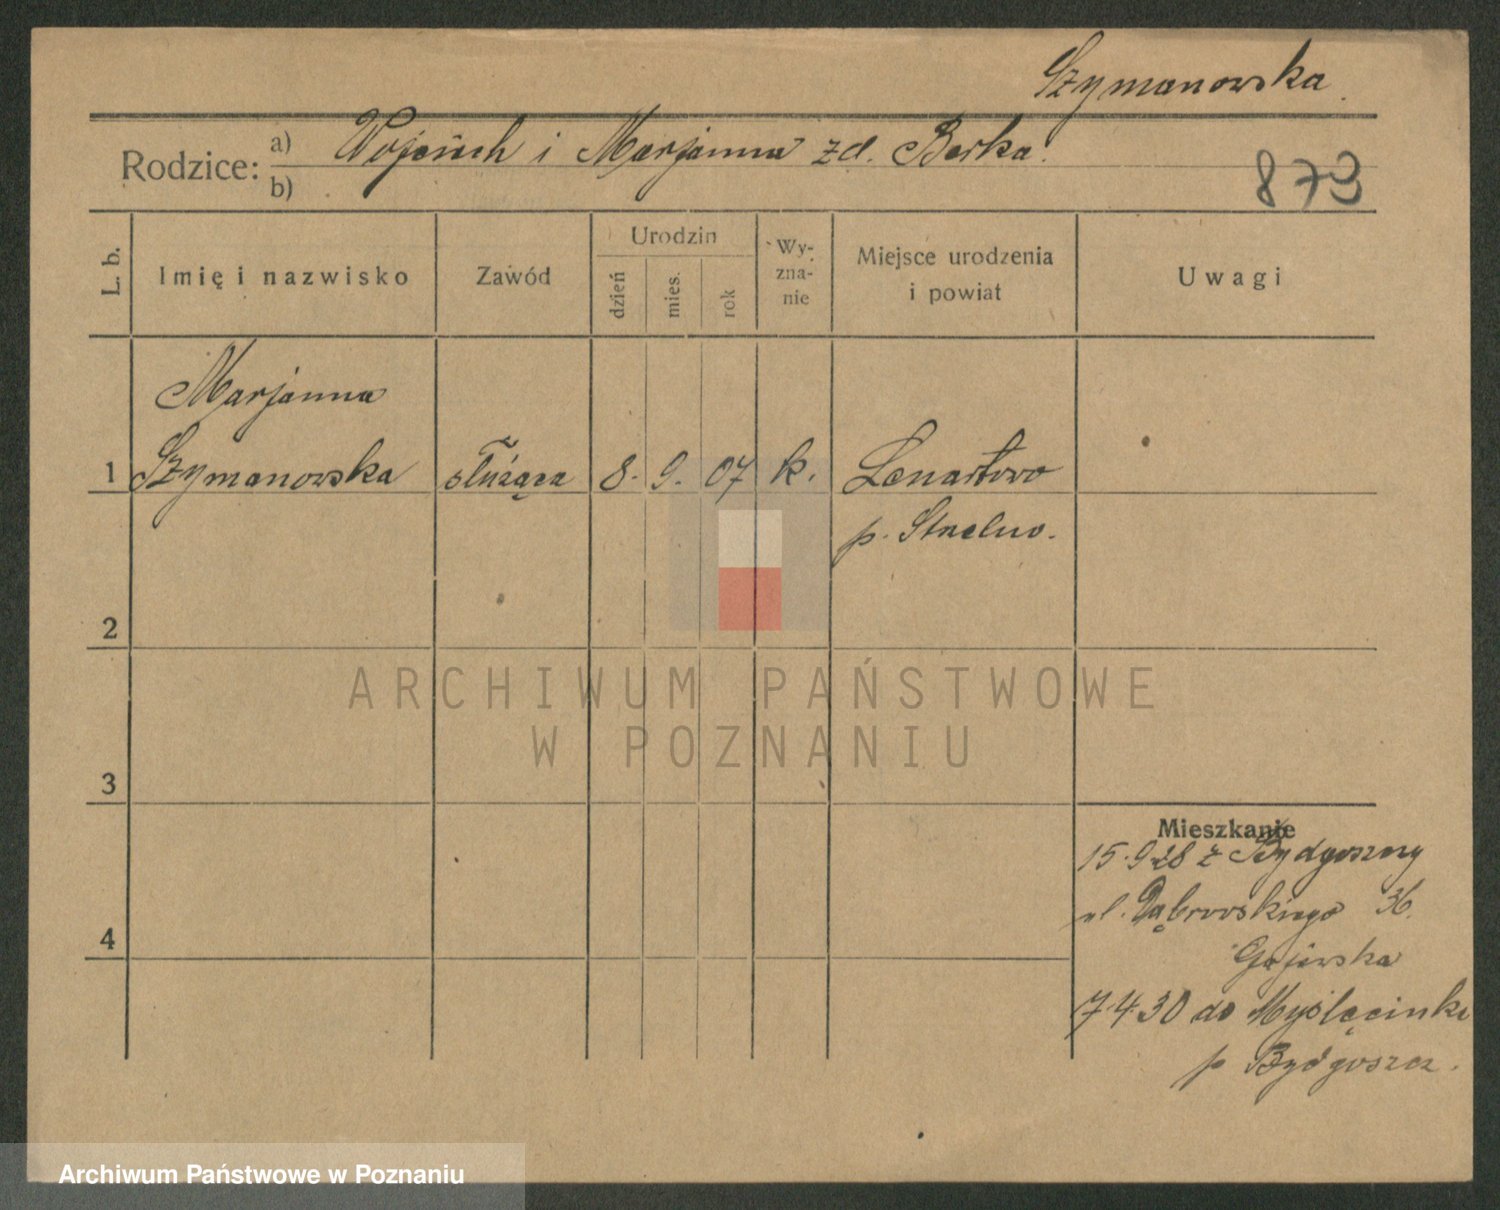 Szymanowska.
Rodzice: a) Wojciech i Marjanna zd. Berka.
b)
873
L. b.
Imię i nazwisko
Zawód
Urodzin
dzień
mies.
rok
Wy-
zna-
nie
Miejsce urodzenia
i powiat
Uwagi
Marjanna
1 Szymanowska służąca 8. 9. 07 k. Lenartowo
p. Strelno.
2
3
4
Mieszkanie
15.9.28 z Bydgoszczy
ul. Dąbrowskiego 36.
Gajewska
7.4.30 do Myślęcinka
p Bydgoszcz.
ARCHIWUM PAŃSTWOWE
W POZNANIU
Archiwum Państwowe w Poznaniu